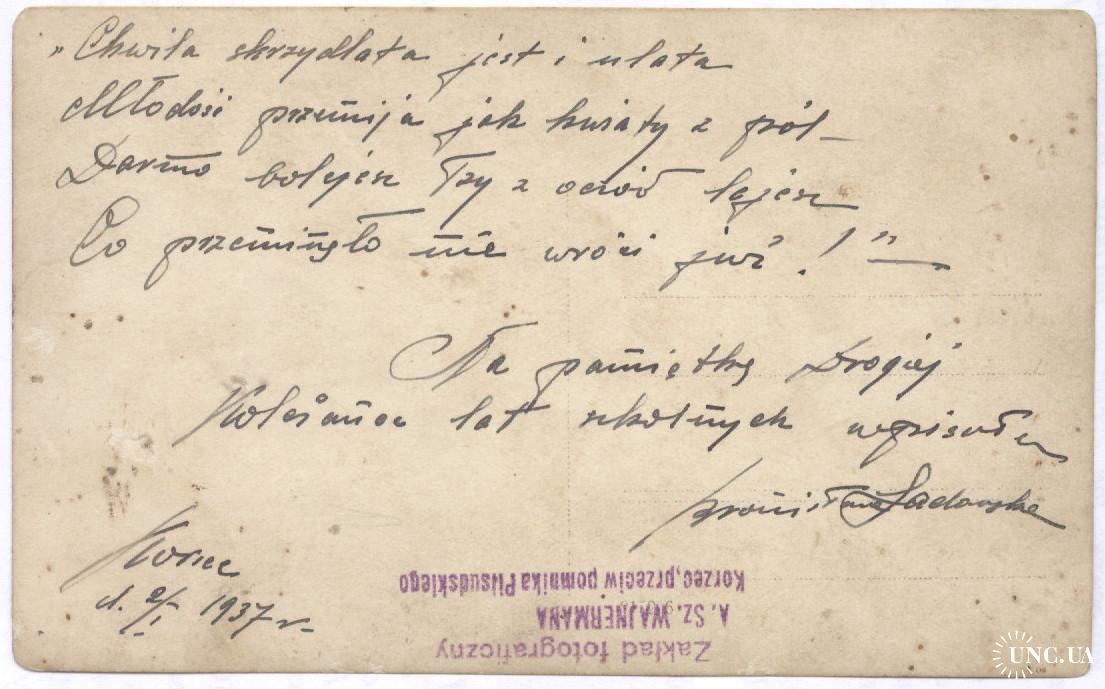 „Chwila skrzydlata jest i ulata
Młodość przemija jak kwiaty z pól –
Darmo bolejesz łzy z ócz lejesz
Co przeminęło nie wróci już!” —
Na pamiątkę Drogiej
Koleżance lat szkolnych wpisała
Bronisława Sadowska
Korzec
d. 2/I 1937 r.
Zakład fotograficzny
A. Sz. WAJNERMANA
Korzec, przeciw pomnika Piłsudskiego
UNC.UA